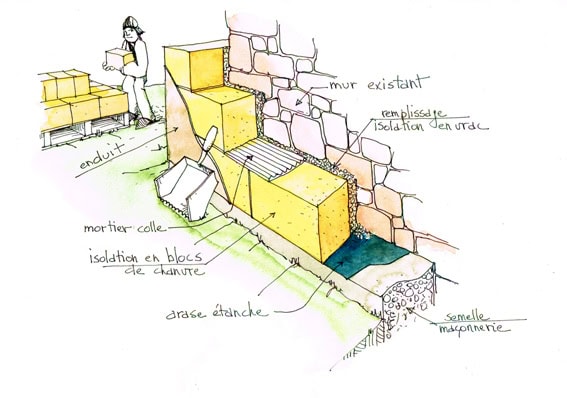 mur existant
remplissage
isolation en vrac
enduit
mortier colle
isolation en blocs
de chanvre
arase étanche
semelle
maçonnerie